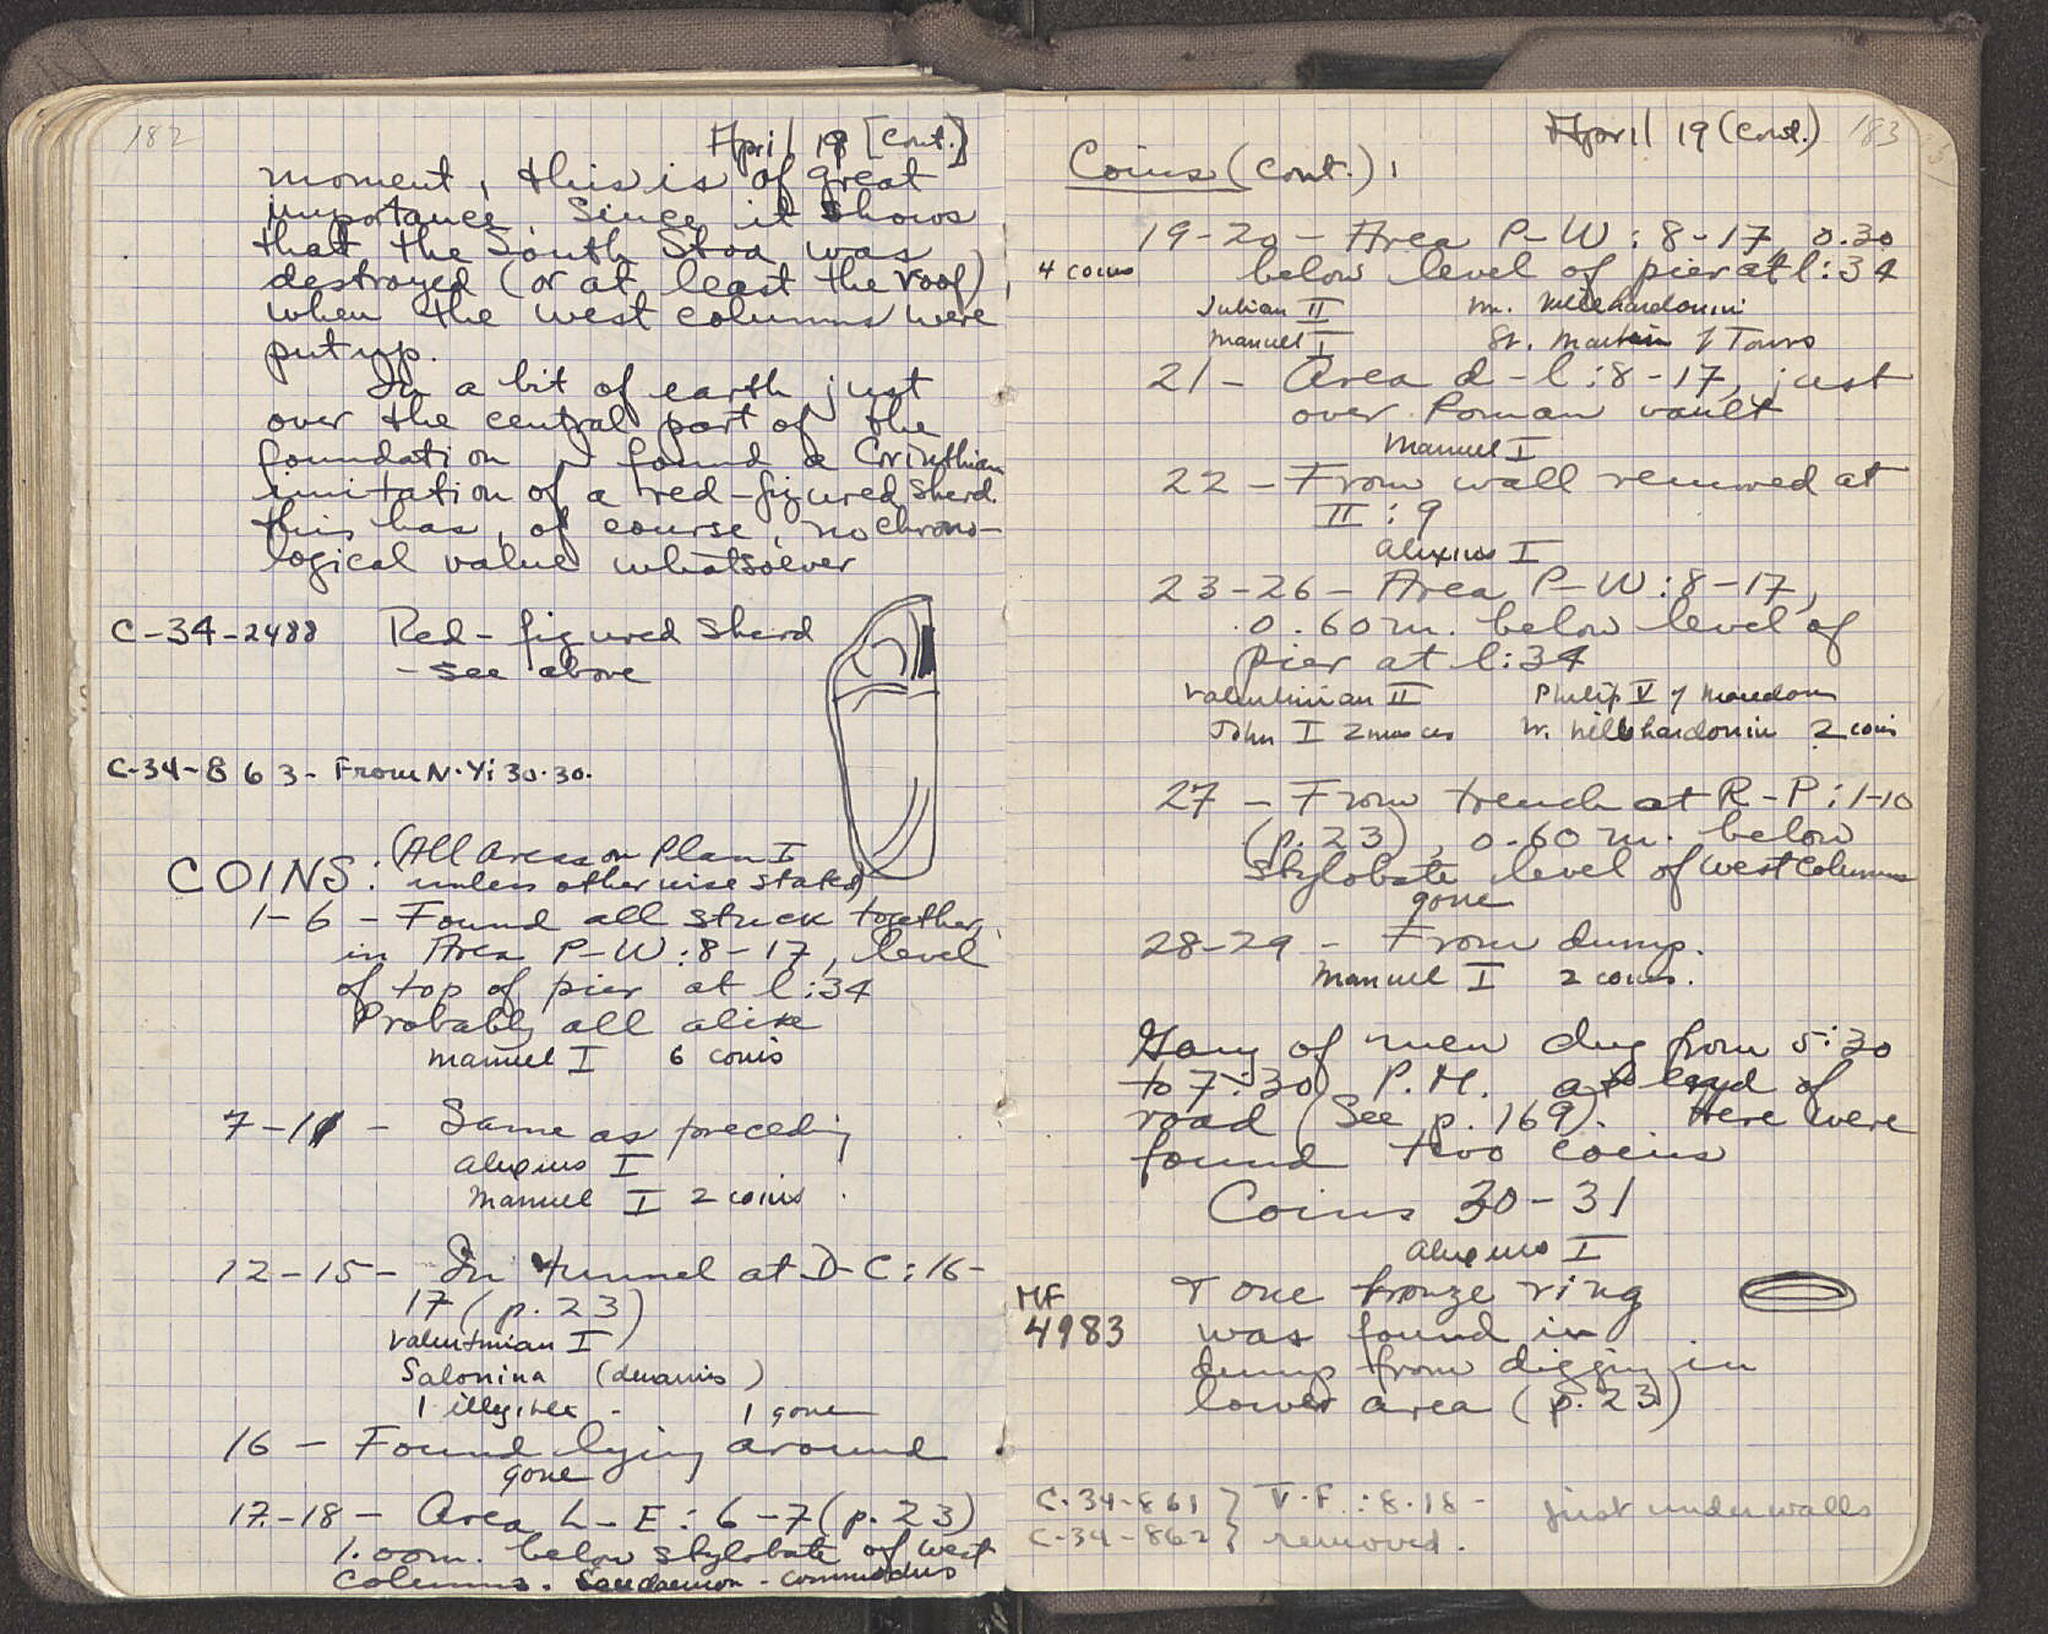 182
April 19 [Cont.]
moment, this is of great
importance since it shows
that the South Stoa was
destroyed (or at least the roof)
when the west columns were
put up.
In a bit of earth just
over the central part of the
foundation I found a Corinthian
imitation of a red-figured sherd.
this has, of course, no chrono-
logical value whatsoever
C-34-2488 Red-figured sherd
- see above
C-34-863 - From N-Y: 30-30.
COINS: (All areas on Plan I
unless otherwise stated)
1-6 - Found all stuck together,
in Area P-W:8-17, level
of top of pier at l:34
Probably all alike
Manuel I 6 coins
7-11 - Same as preceding
Alexius I
Manuel I 2 coins
12-15 - In tunnel at D-C:16-
17 (p.23)
Valentinian I
Salonina (denarius)
1 illegible - 1 gone
16 - Found lying around
gone
17-18 - Area L-E:6-7 (p.23)
1.00m. below stylobate of west
columns. - Commodus
April 19 (Cont.) 183
Coins (cont.):
19-20 - Area P-W:8-17, 0.30
4 coins below level of pier at l:34
Julian II W. Villehardouin
Manuel I St. Martin of Tours
21 - Area d-l:8-17, just
over Roman vault
Manuel I
22 - From wall removed at
II:9
Alexius I
23-26 - Area P-W:8-17,
0.60 m. below level of
pier at l:34
Valentinian II Philip V of Macedon
John I 2 W. Villehardouin 2 coins
27 - From trench at R-P:1-10
(p.23), 0.60 m. below
stylobate level of west columns
gone
28-29 - From dump.
Manuel I 2 coins.
Gang of men dug from 5:30
to 7:30 P.M. at end of
road (See p.169). Here were
found two coins
Coins 30-31
Alexius I
MF
4983
+ one bronze ring
was found in
dump from digging in
lower area (p.23)
C-34-861 } V-F:8-18 - just under walls
C-34-862 } removed.